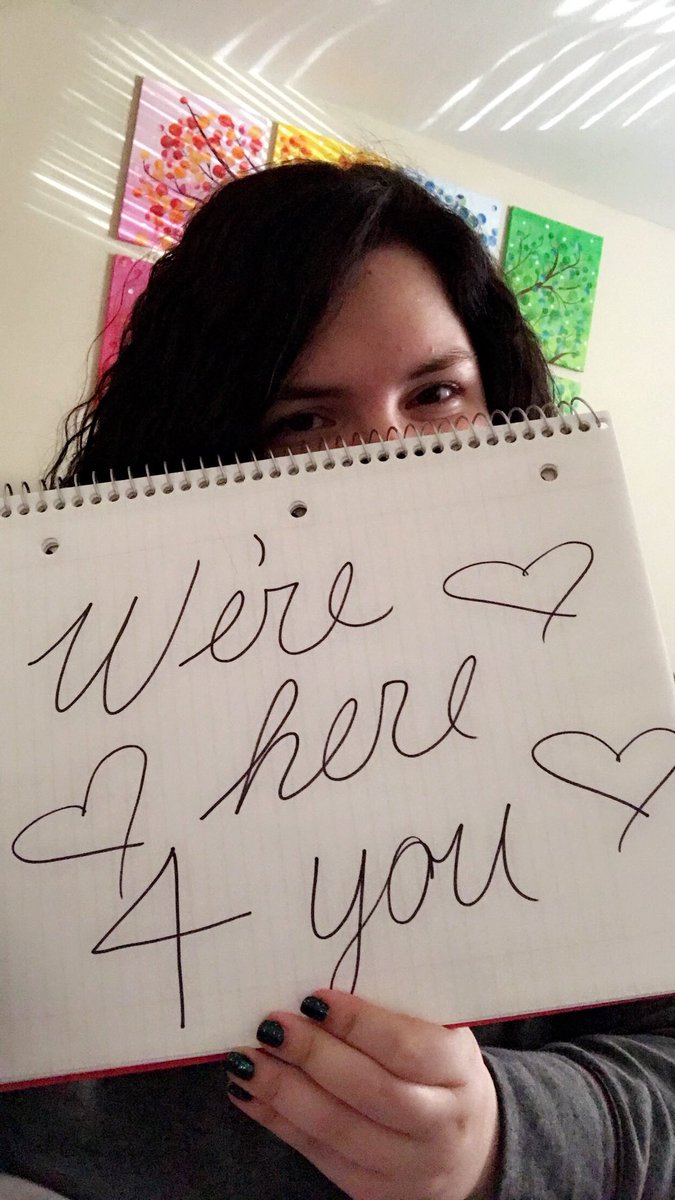 We're
here
4 you